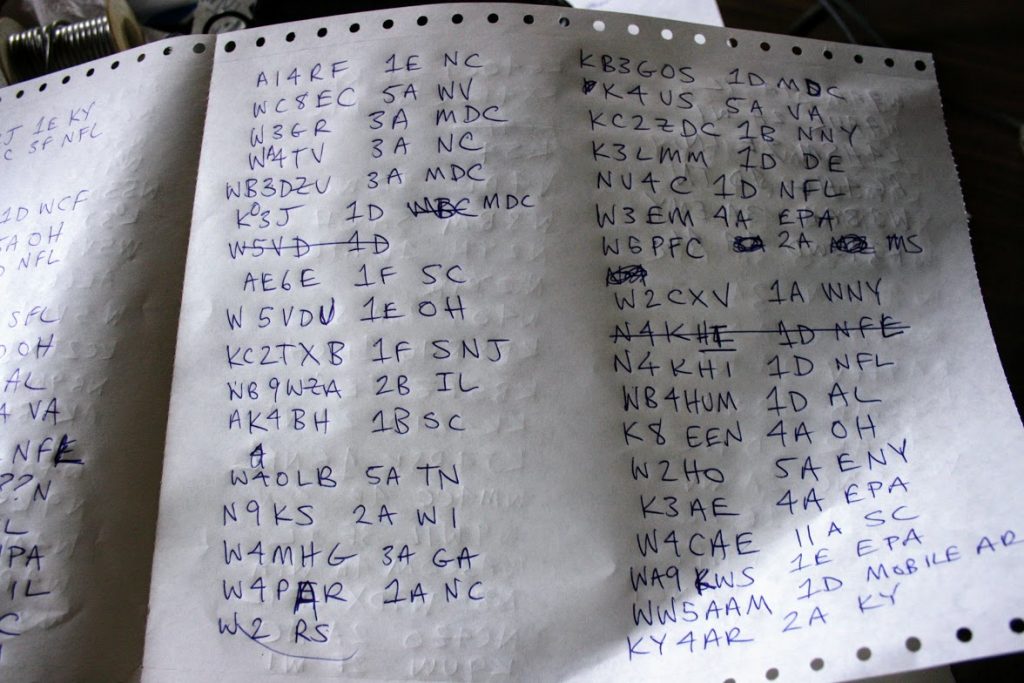 J 1E KY
C 3F NFL
1D WCF
5A OH
NFL
SFL
OH
AL
VA
NFL
??N
L
PA
IL
C
AI4RF 1E NC
WC8EC 5A WV
W3GR 3A MDC
WA4TV 3A NC
WB3DZU 3A MDC
K03J 1D MDC
W5VD 1D
AE6E 1F SC
W5VDU 1E OH
KC2TXB 1F SNJ
WB9WZA 2B IL
AK4BH 1B SC
4
W4OLB 5A TN
N9KS 2A WI
W4MHG 3A GA
W4PAR 1A NC
W2 RS
KB3GOS 1D MDC
K4US 5A VA
KC2ZDC 1B NNY
K3LMM 1D DE
NU4C 1D NFL
W3EM 4A EPA
W6PFC 2A MS
W2CXV 1A WNY
N4KHI 1D NFL
N4KHI 1D NFL
WB4HUM 1D AL
K8EEN 4A OH
W2HO 5A ENY
K3AE 4A EPA
W4CAE 11A SC
WA9KWS 1E EPA
WW5AAM 1D MOBILE AR
KY4AR 2A KY